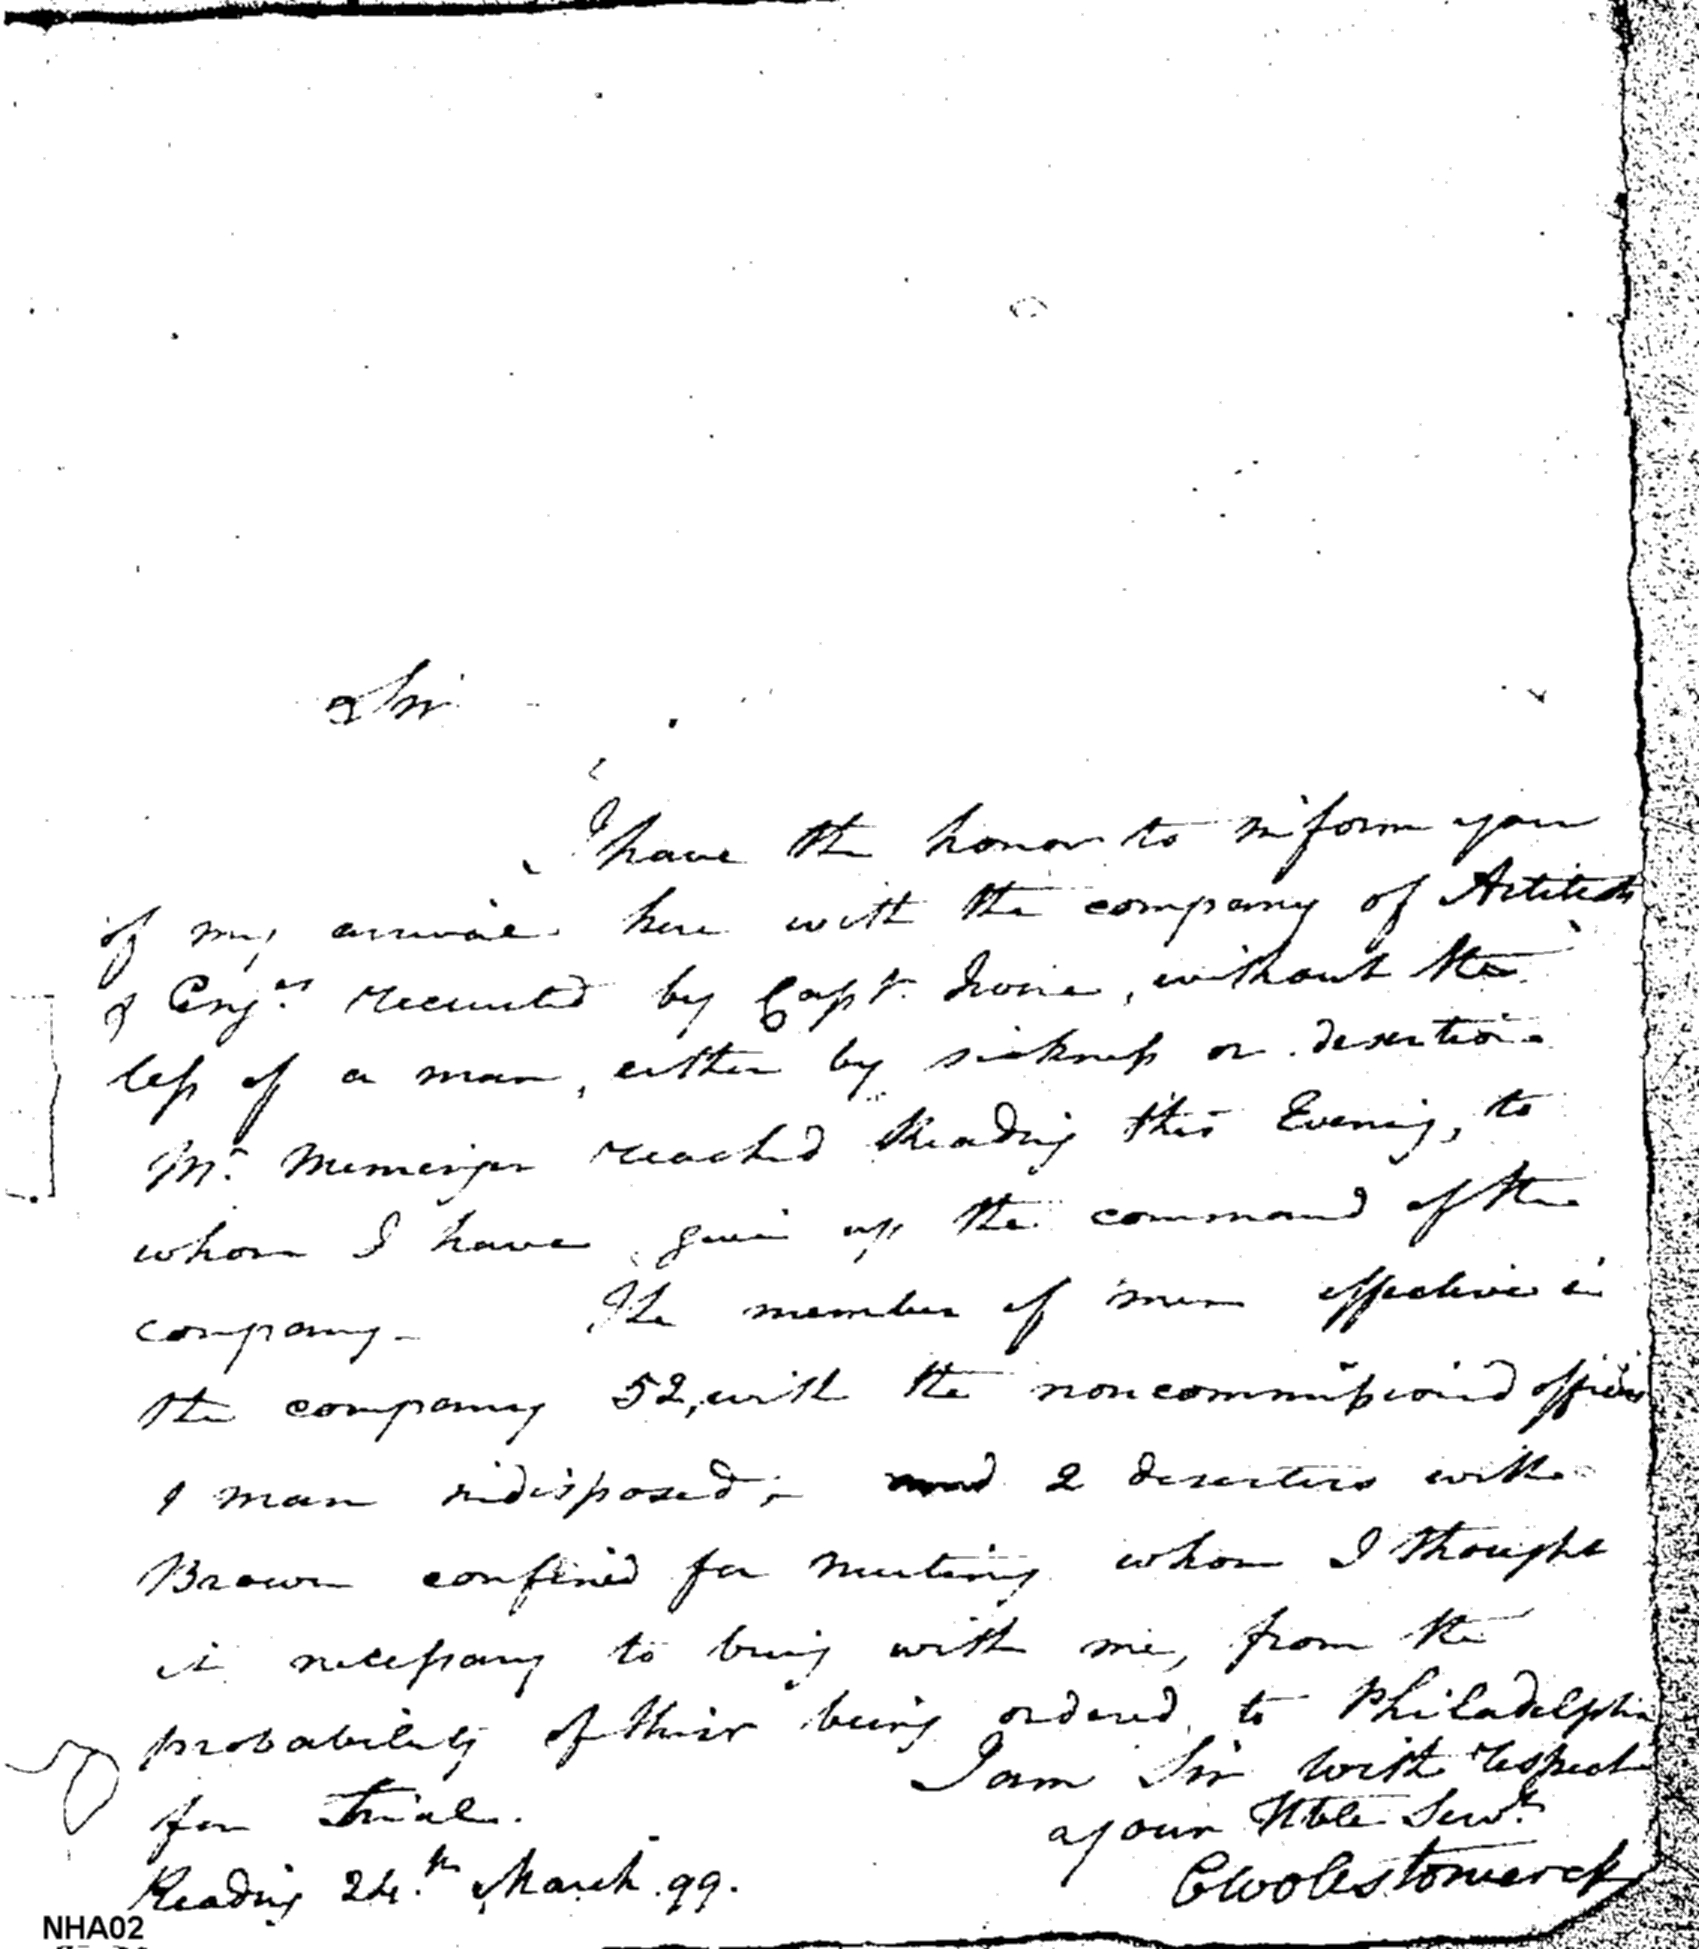 Sir
I have the honor to inform you
of my arrival here with the company of
& Engrs recruited by Capt. Irvine, without the
loss of a man, either by sickness or desertion
Mr. Memenger reached Reading this Evening, to
whom I have given up the command of the
company - The number of men effective in
the company 52, with the noncommissioned officers
1 man indisposed, - and 2 deserters with
Brown confined for Mutiny whom I thought
it necessary to bring with me, from the
probability of their being ordered to Philadelphia
for Trial. I am Sir with respect
your Hble Servt
Reading 24.th March. 99.
NHA02